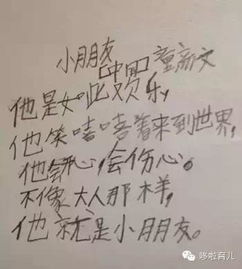 小朋友
中四 童新文
他是如此欢乐,
他笑嘻嘻着来到世界,
他会心会伤心。
不像大人那样,
他就是小朋友。
哆啦育儿